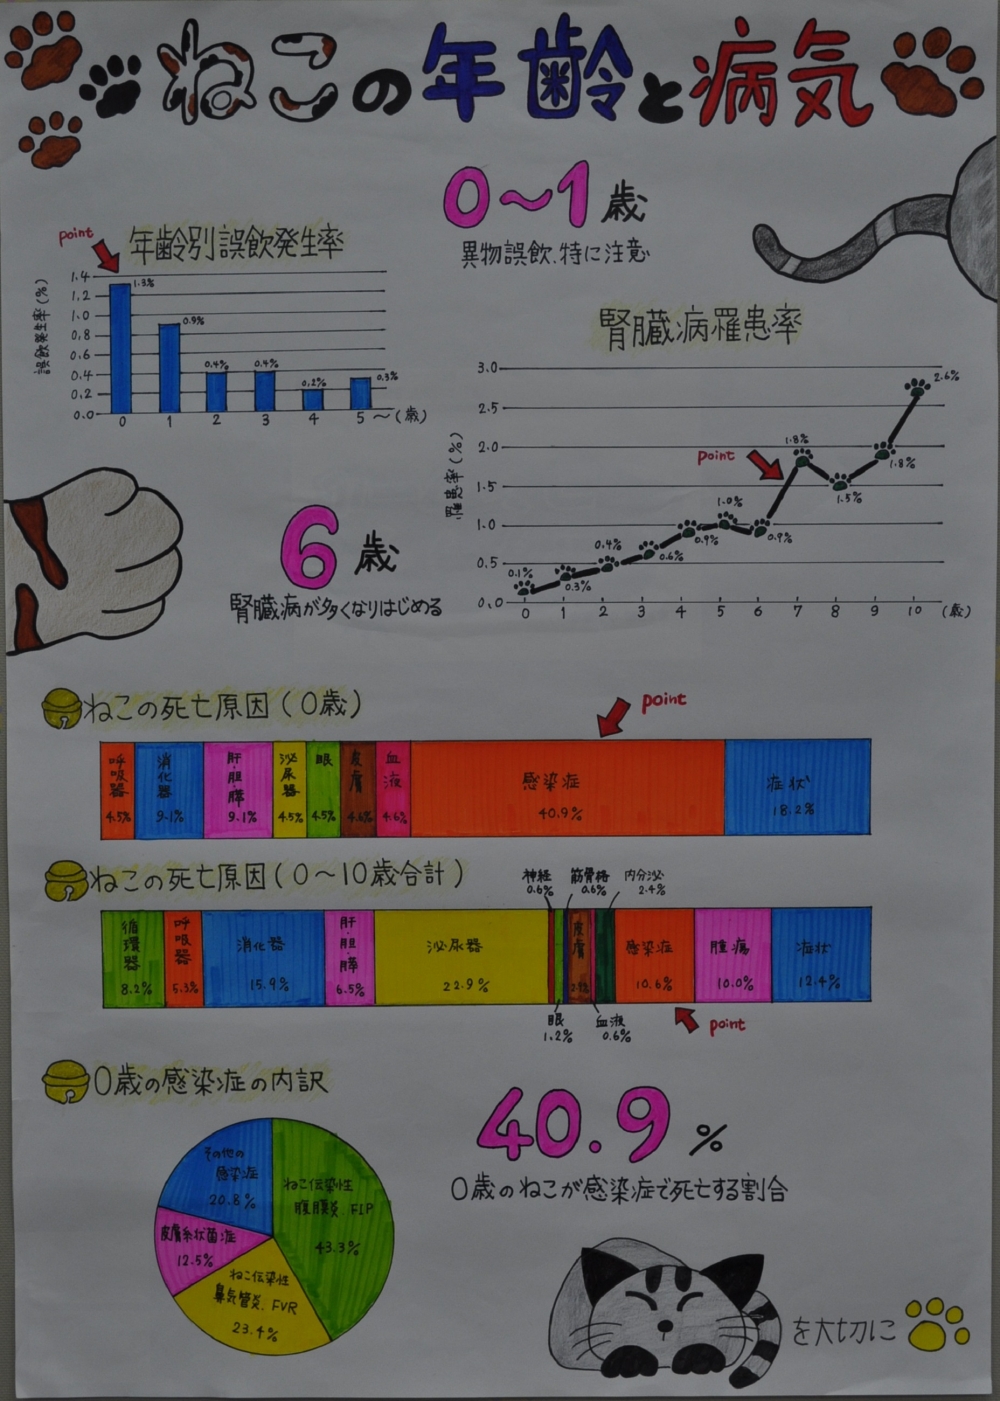 ねこの年齢と病気
0〜1歳
異物誤飲、特に注意
point
年齢別誤飲発生率
誤飲発生率(%)
1.4
1.2
1.0
0.8
0.6
0.4
0.2
0.0
1.3%
0.9%
0.4%
0.4%
0.2%
0.3%
0 1 2 3 4 5〜(歳)
腎臓病罹患率
罹患率(%)
3.0
2.5
2.0
1.5
1.0
0.5
0.0
point
0.1%
0.3%
0.4%
0.6%
0.9%
1.0%
0.9%
1.8%
1.5%
1.8%
2.6%
0 1 2 3 4 5 6 7 8 9 10 (歳)
6歳
腎臓病が多くなりはじめる
ねこの死亡原因(0歳)
point
呼吸器 4.5%
消化器 9.1%
肝・胆・膵 9.1%
泌尿器 4.5%
眼 4.5%
皮膚 4.6%
血液 4.6%
感染症 40.9%
症状 18.2%
ねこの死亡原因(0〜10歳合計)
神経 0.6%
筋骨格 0.6%
内分泌 2.4%
循環器 8.2%
呼吸器 5.3%
消化器 15.9%
肝・胆・膵 6.5%
泌尿器 22.9%
皮膚
感染症 10.6%
腫瘍 10.0%
症状 12.4%
眼 1.2%
血液 0.6%
point
0歳の感染症の内訳
ねこ伝染性
腹膜炎、FIP
43.3%
ねこ伝染性
鼻気管炎、FVR
23.4%
皮膚糸状菌症
12.5%
その他の
感染症
20.8%
40.9%
0歳のねこが感染症で死亡する割合
を大切に